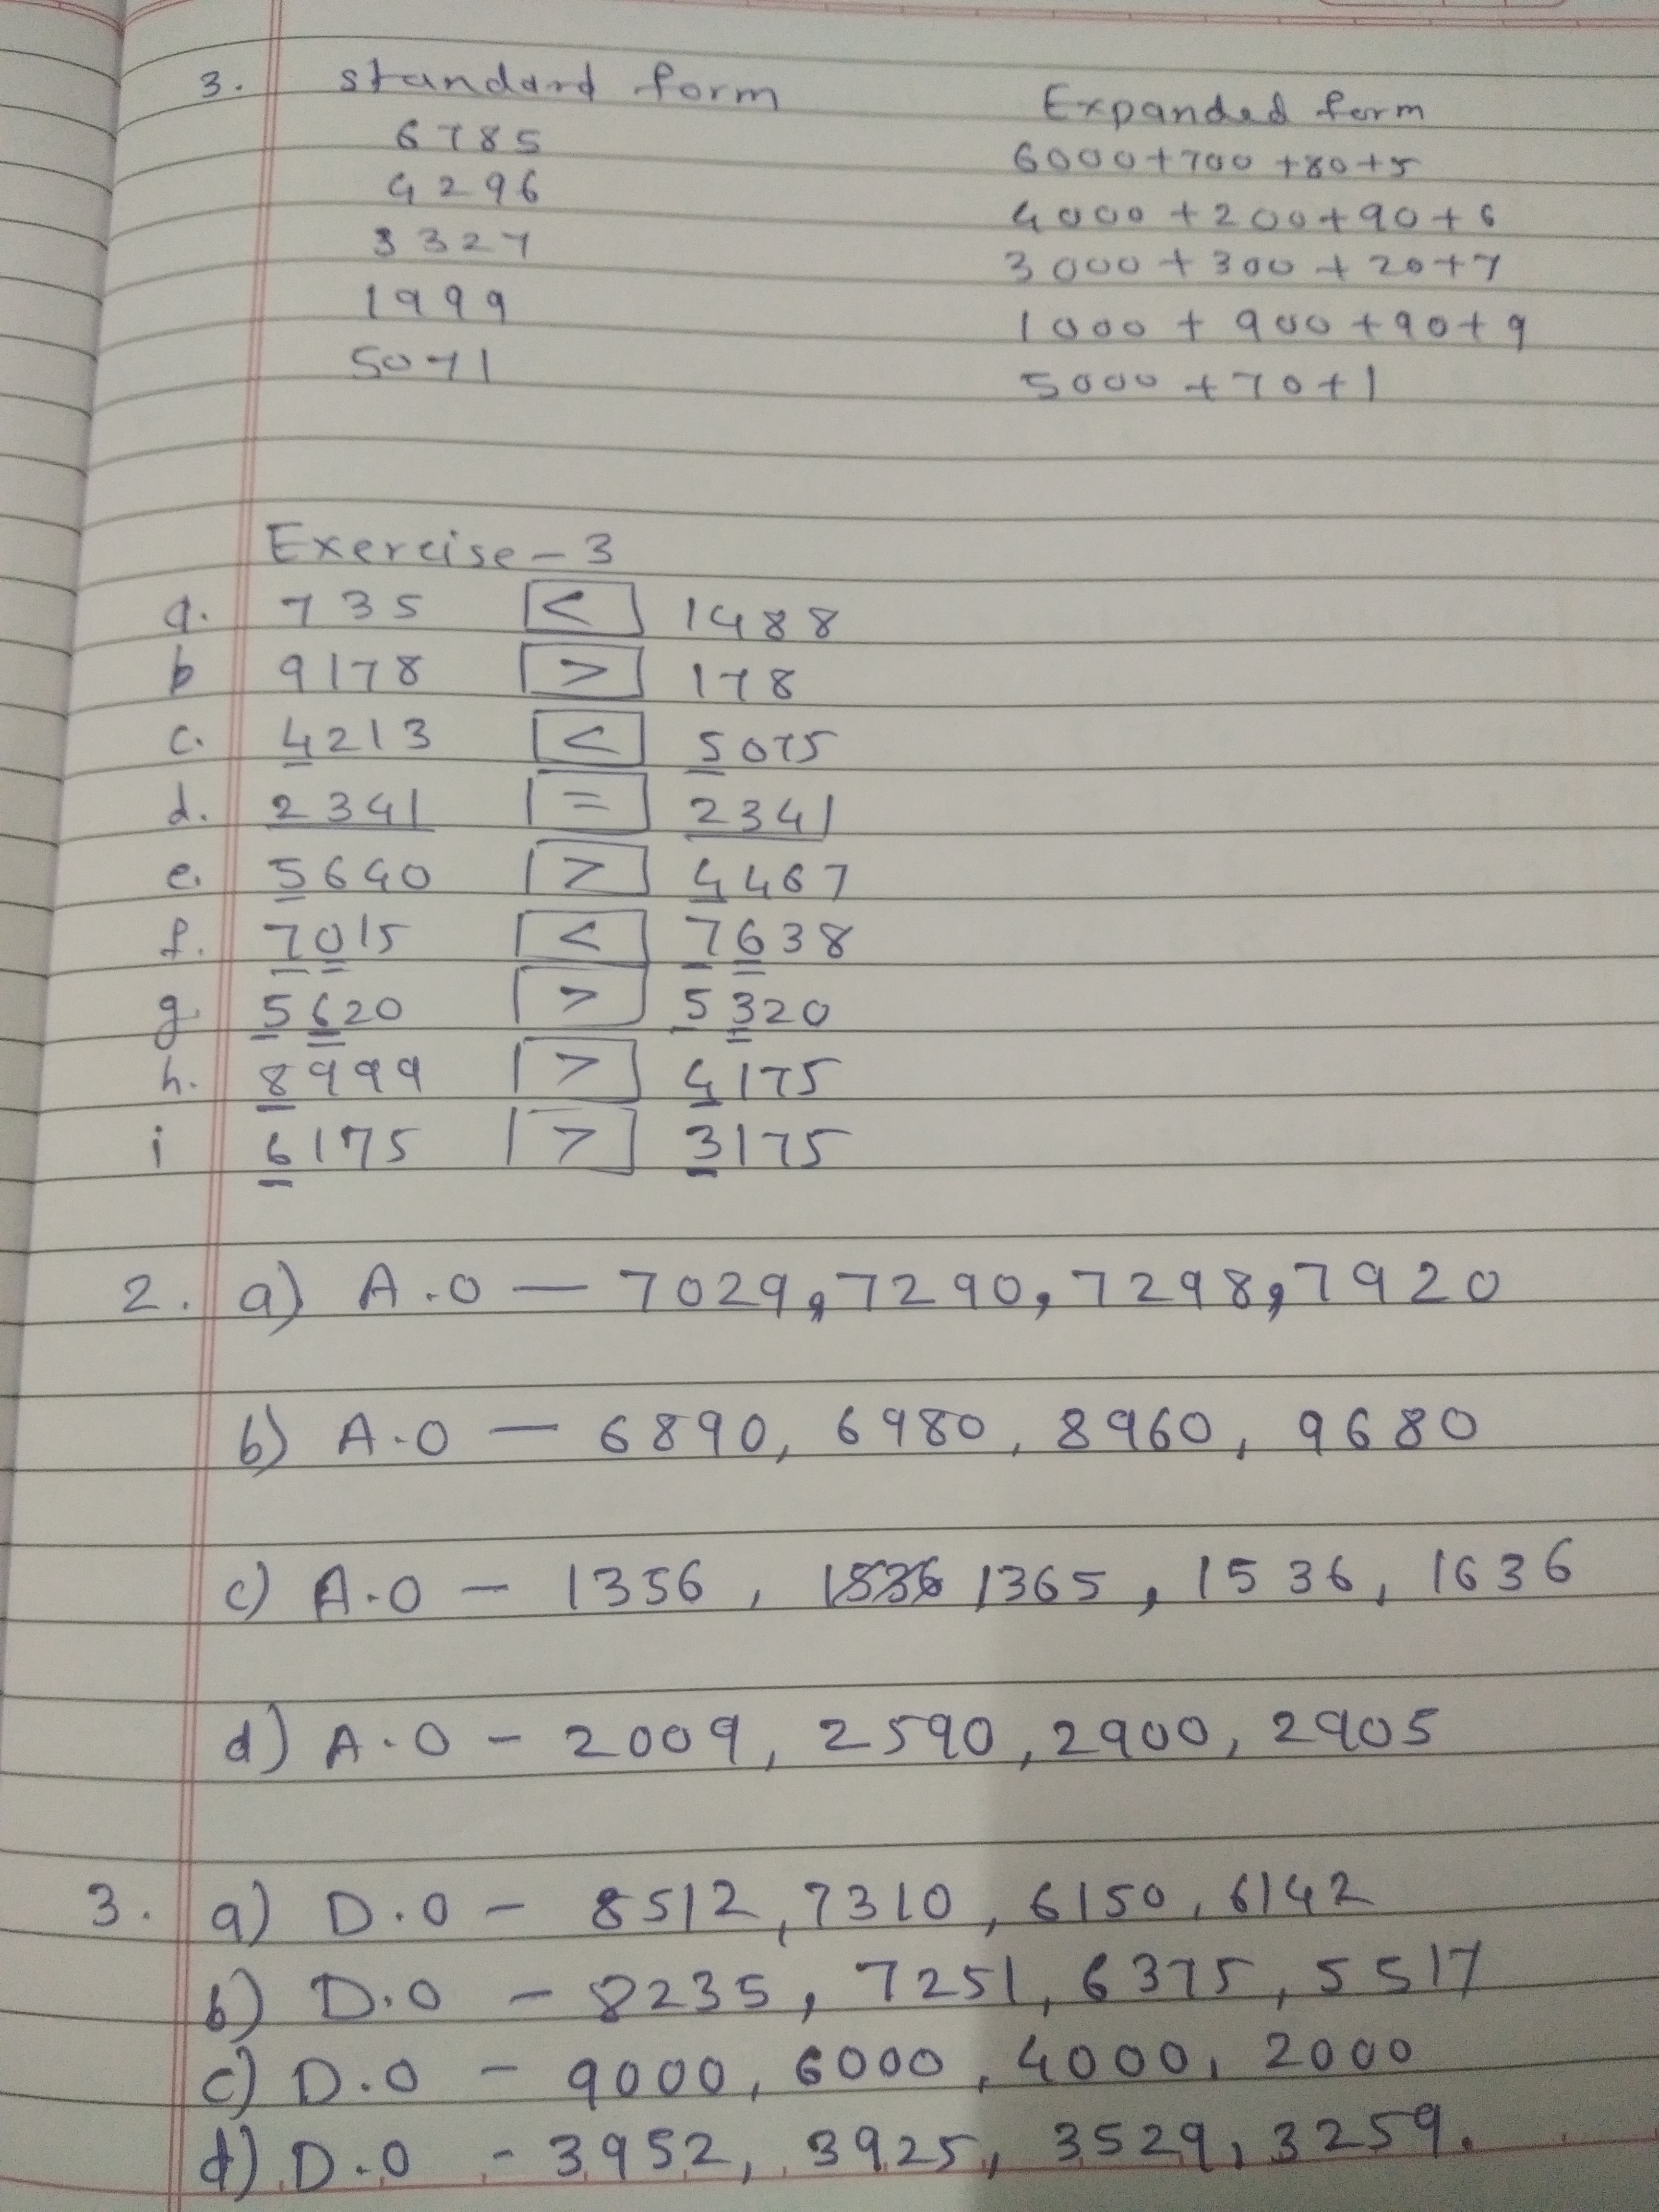 3. standard form Expanded form
6785 6000+700+80+5
4296 4000+200+90+6
3327 3000+300+20+7
1999 1000+900+90+9
5071 5000+70+1
Exercise-3
a. 735 < 1488
b 9178 > 178
c. 4213 < 5075
d. 2341 = 2341
e. 5640 > 4467
f. 7015 < 7638
g. 5620 > 5320
h. 8999 > 4175
i 6175 > 3175
2. a) A.O — 7029, 7290, 7298, 7920
b) A.O — 6890, 6980, 8960, 9680
c) A.O - 1356, 1536 1365, 1536, 1636
d) A.O - 2009, 2590, 2900, 2905
3. a) D.O - 8512, 7310, 6150, 6142
b) D.O - 8235, 7251, 6375, 5517
c) D.O - 9000, 6000, 4000, 2000
d) D.O - 3952, 3925, 3529, 3259.